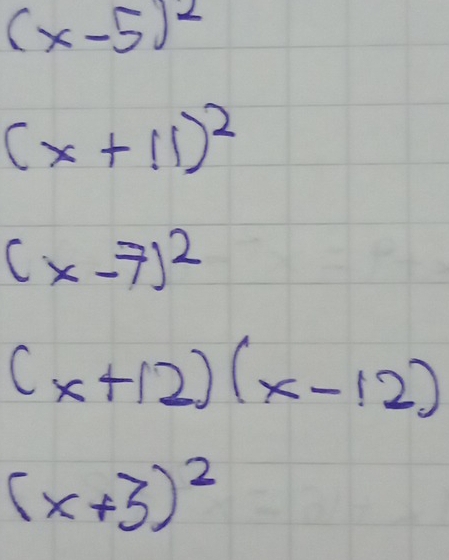 (x-5)²
(x+11)²
(x-7)²
(x+12)(x-12)
(x+3)²